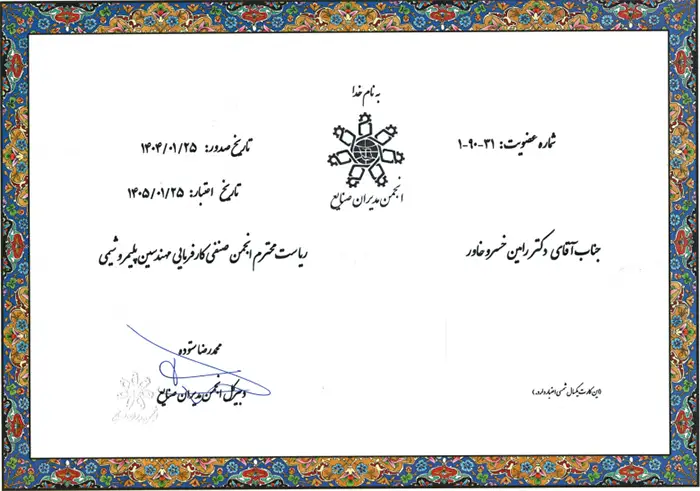 به نام خدا
انجمن مدیران صنایع
شماره عضویت: ۳۱-۹۰-۱
تاریخ صدور: ۱۴۰۴/۰۱/۲۵
تاریخ اعتبار: ۱۴۰۵/۰۱/۲۵
جناب آقای دکتر رامین خسرو خاور
ریاست محترم انجمن صنفی کارفرمایی مهندسین پلیمر و شیمی
محمدرضا ستوده
دبیر کل انجمن مدیران صنایع
(این کارت یکسال شمسی اعتبار دارد.)